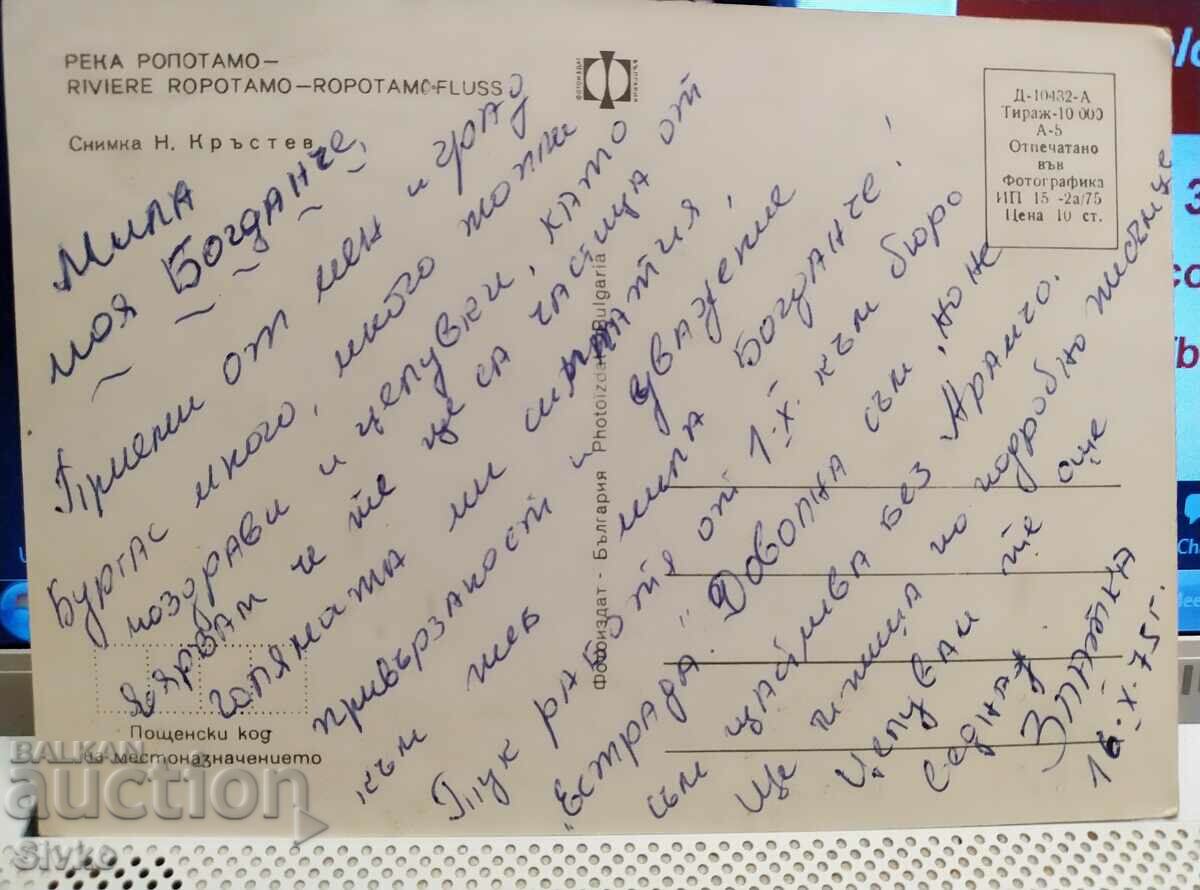 РЕКА РОПОТАМО—
RIVIERE ROPOTAMO—ROPOTAMO-FLUSS
Снимка Н. Кръстев
фотоиздат
българия
Д-10432-А
Тираж-10 000
А-5
Отпечатано
във
Фотографика
ИП 15 -2а/75
Цена 10 ст.
Мила
моя Богданче,
Приеми от мен и град
Бургас много, много топли
поздрави и целувки, като
вярвам че те ще са частица от
голямата ми симпатия,
привързаност и уважение
към теб мила Богданче!
Тук работя от 1.X. към бюро
"Естрада". Доволна съм, но не
съм щастлива без Арамчо.
Ще ти пиша по подробно писъмце
Целувам те още
седнаж
Златка
16.X.75г.
Фотоиздат - България Photoizdat Bulgaria
Пощенски код
на местоназначението
BALKAN
auction
Sivko